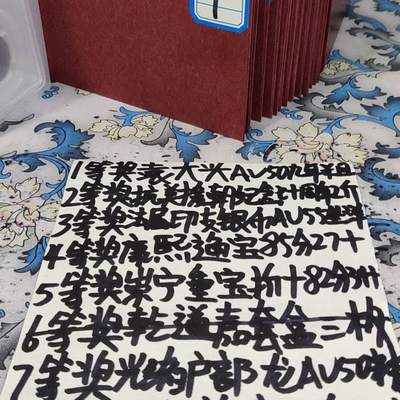 1
1等奖袁大头AV50九年
2等奖抗美援朝
3等奖法属印支银币AU55
4等奖康熙通宝85分27十
5等奖崇宁重宝折十82分
6等奖乾道嘉套盒三枚
7等奖光绪户部龙AU50